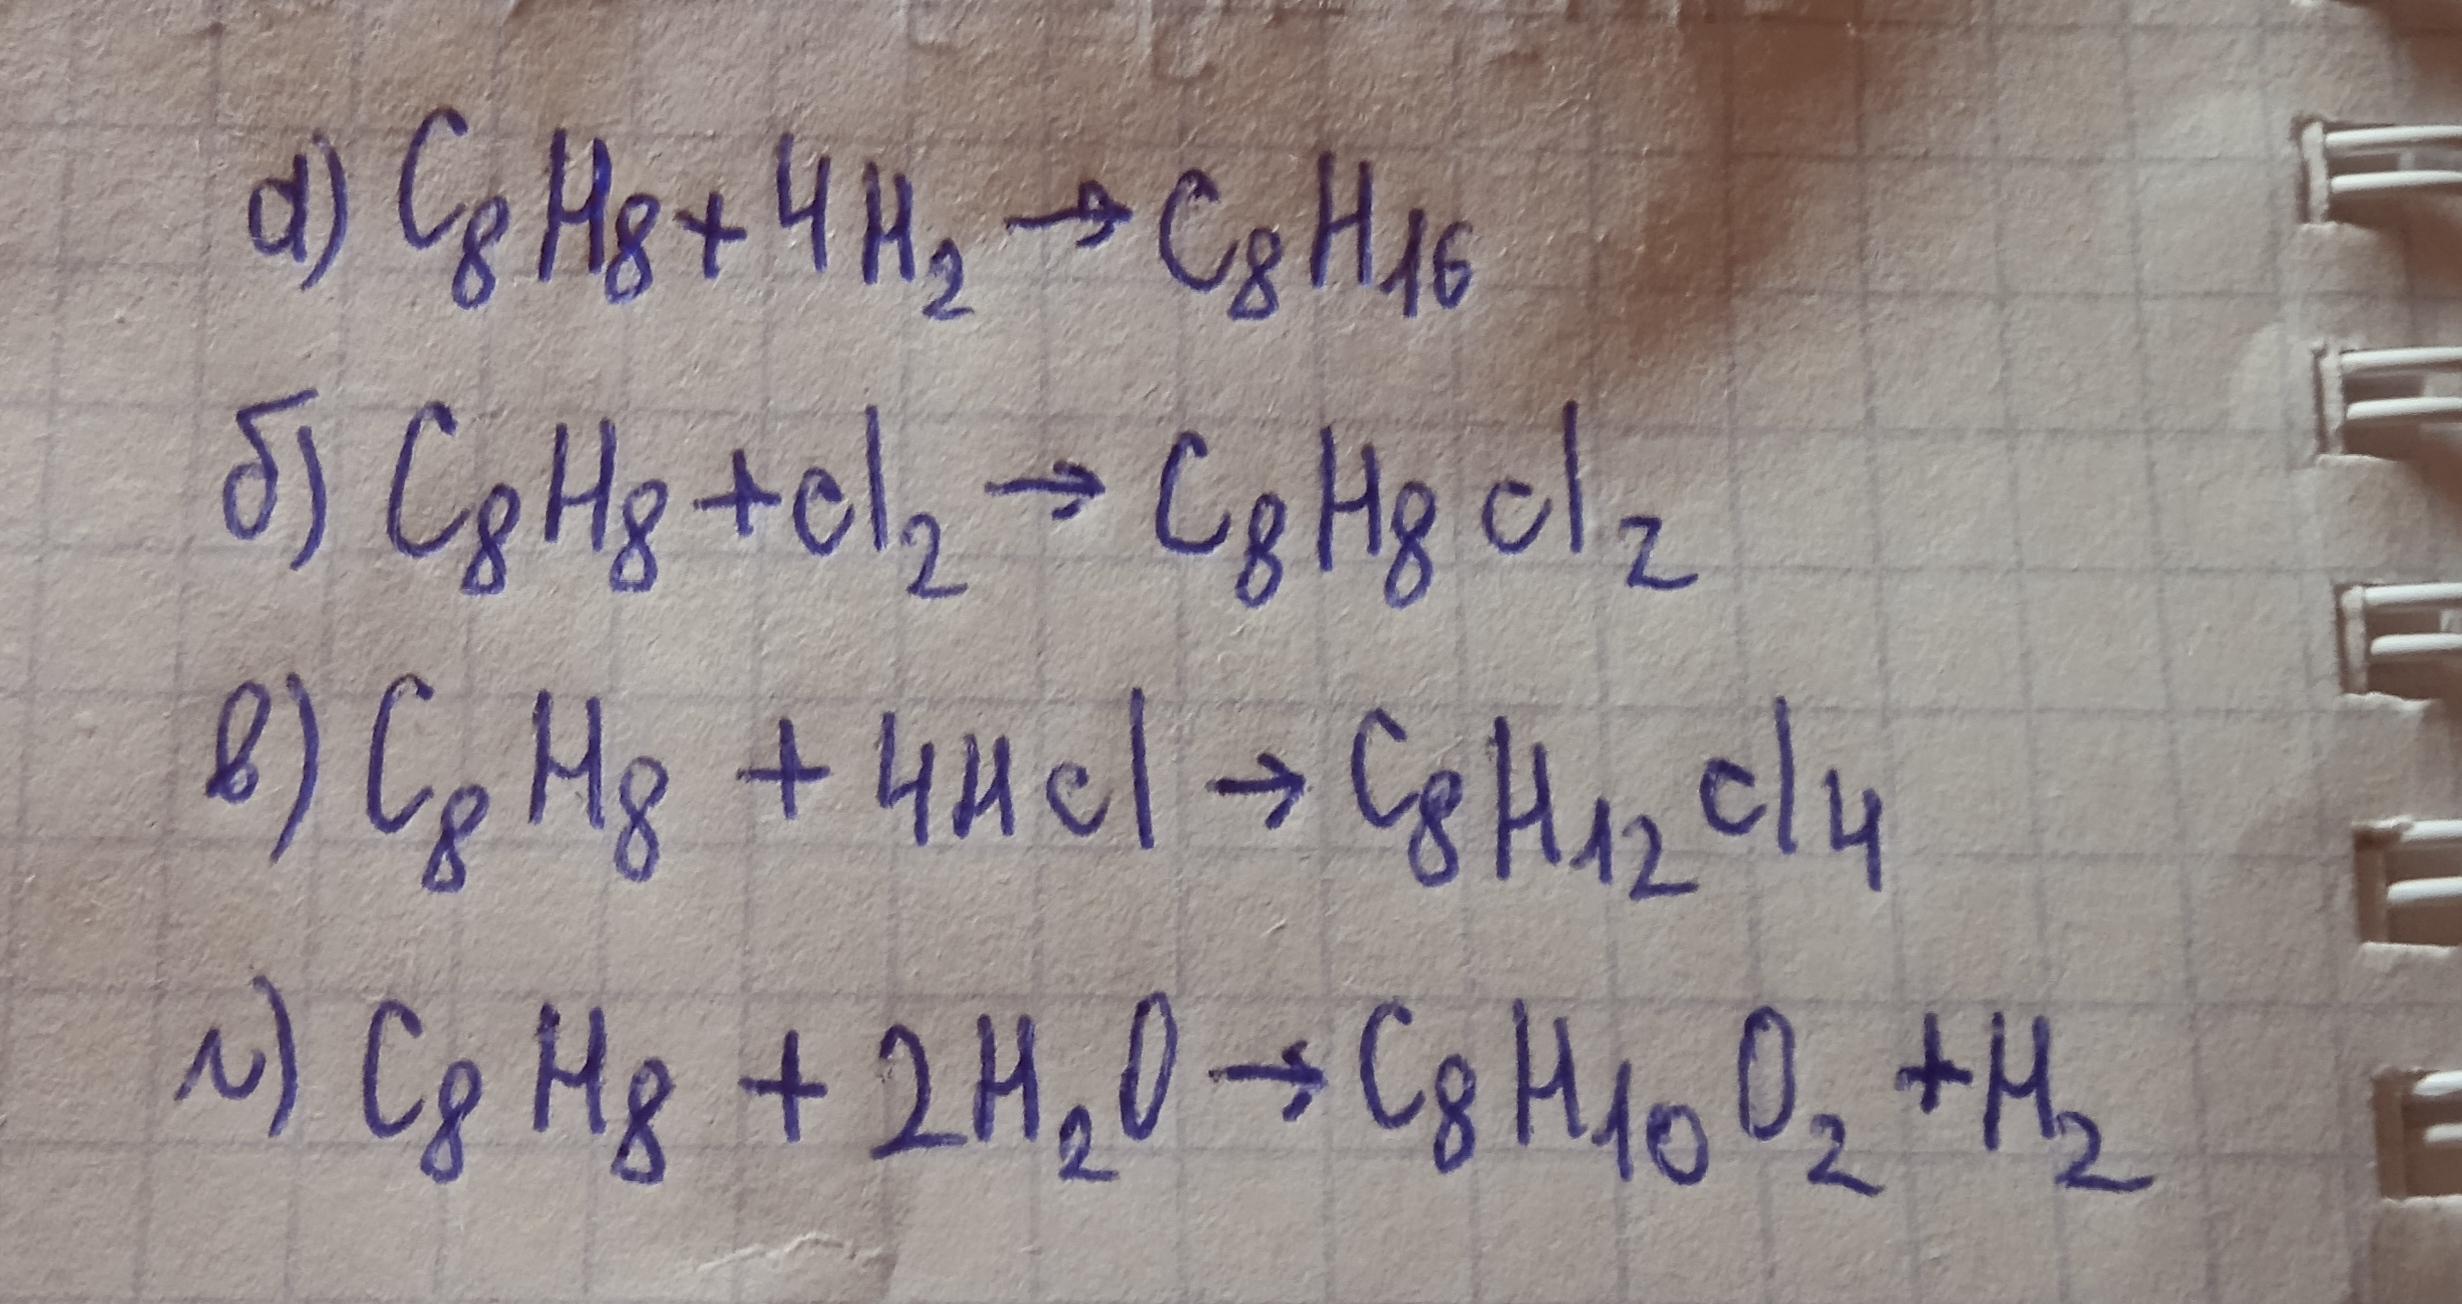 а) C₈H₈ + 4H₂ → C₈H₁₆
б) C₈H₈ + Cl₂ → C₈H₈Cl₂
в) C₈H₈ + 4HCl → C₈H₁₂Cl₄
г) C₈H₈ + 2H₂O → C₈H₁₀O₂ + H₂